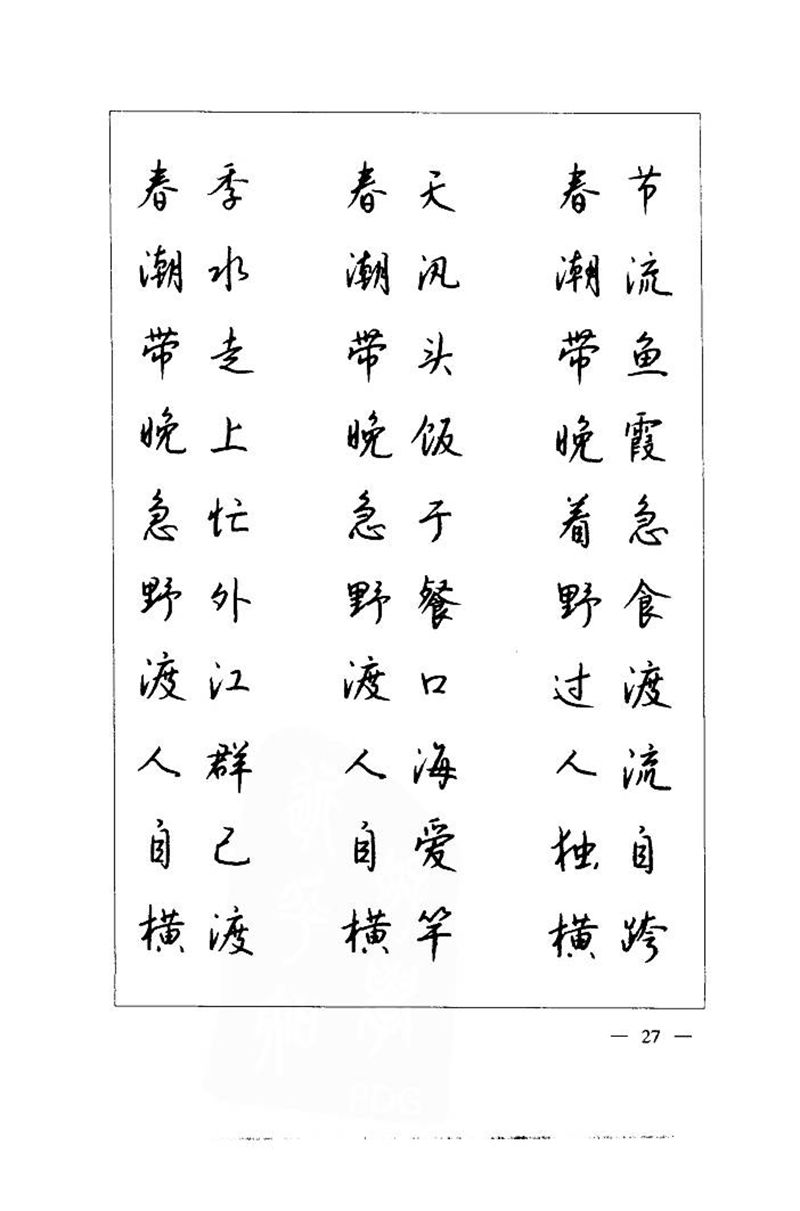 春季 春天 春节
潮水 潮汛 潮流
带走 带头 带鱼
晚上 晚饭 晚霞
急忙 急于 着急
野外 野餐 野食
渡江 渡口 过渡
人群 人海 人流
自己 自爱 独自
横渡 横竿 横跨
— 27 —
PDG